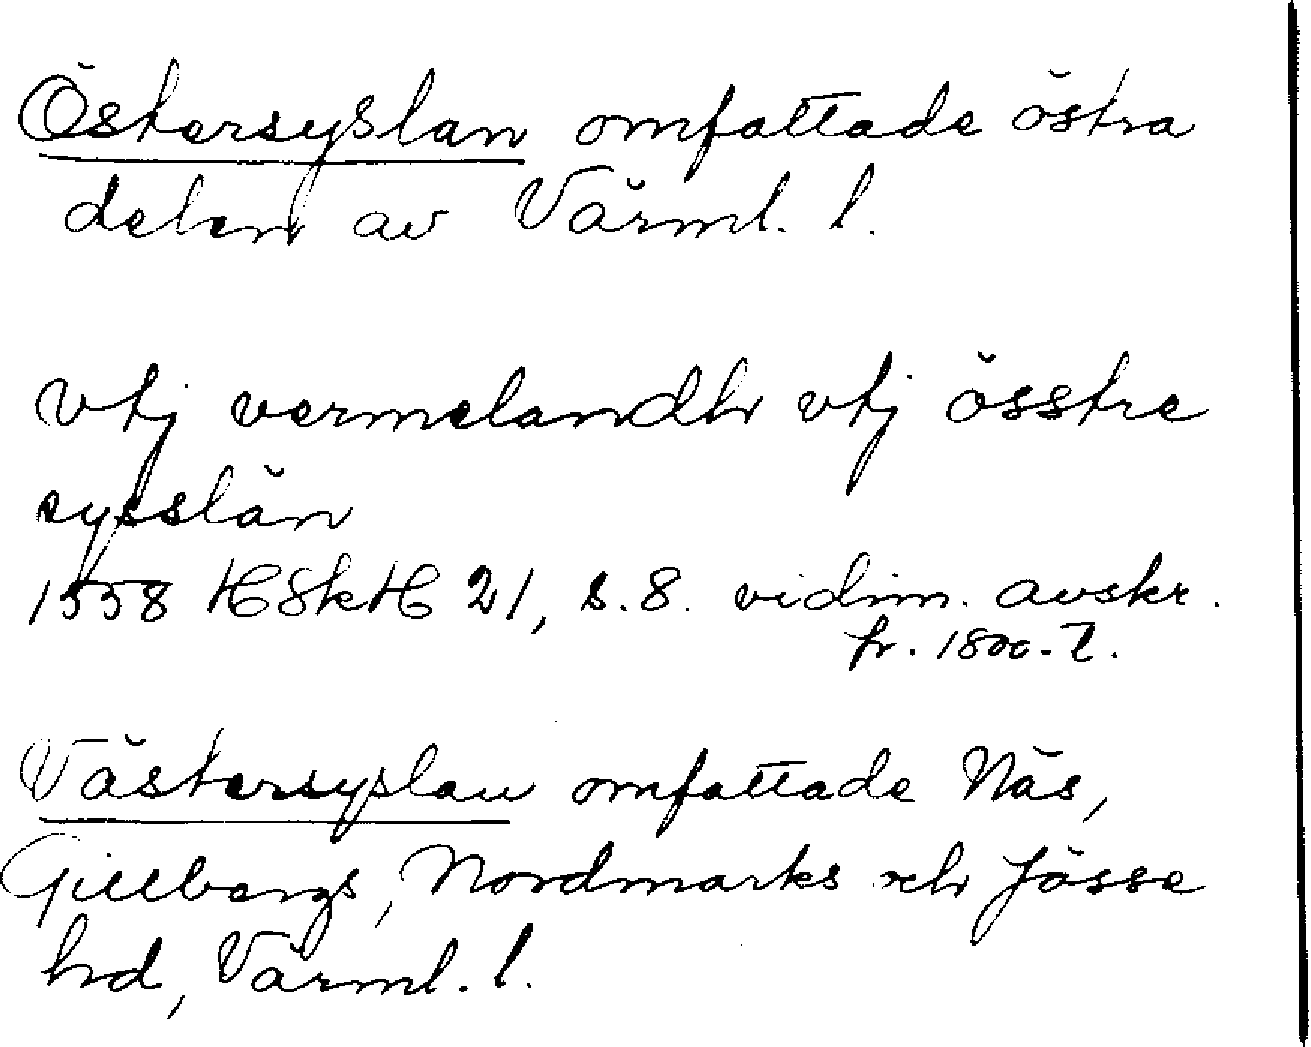 Östersyslan omfattade östra
delen av Värml. l.
vtj vermelandh vtj össtre
sysslän
1558 HSkH 21, s. 8. vidim. avskr.
fr. 1800-t.
Västersyslan omfattade Näs,
Gillbergs, Nordmarks och Jösse
hd, Värml. l.